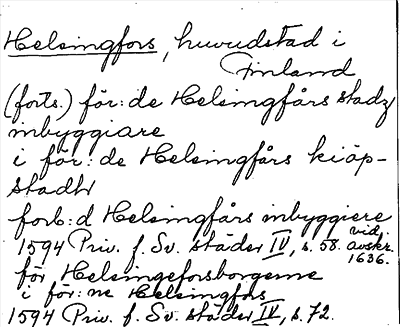 Helsingfors, huvudstad i
Finland
(forts.) för:de Helsingfårs stadz
inbyggiare
i för:de Helsingfårs kiöp-
stadh
forb:d Helsingfårs inbyggiere
1594 Priv. f. Sv. städer IV, s. 58. vid. avskr. 1636.
för Helsingeforsborgerne
i för:ne Helsingfors
1594 Priv. f. Sv. städer IV, s. 72.